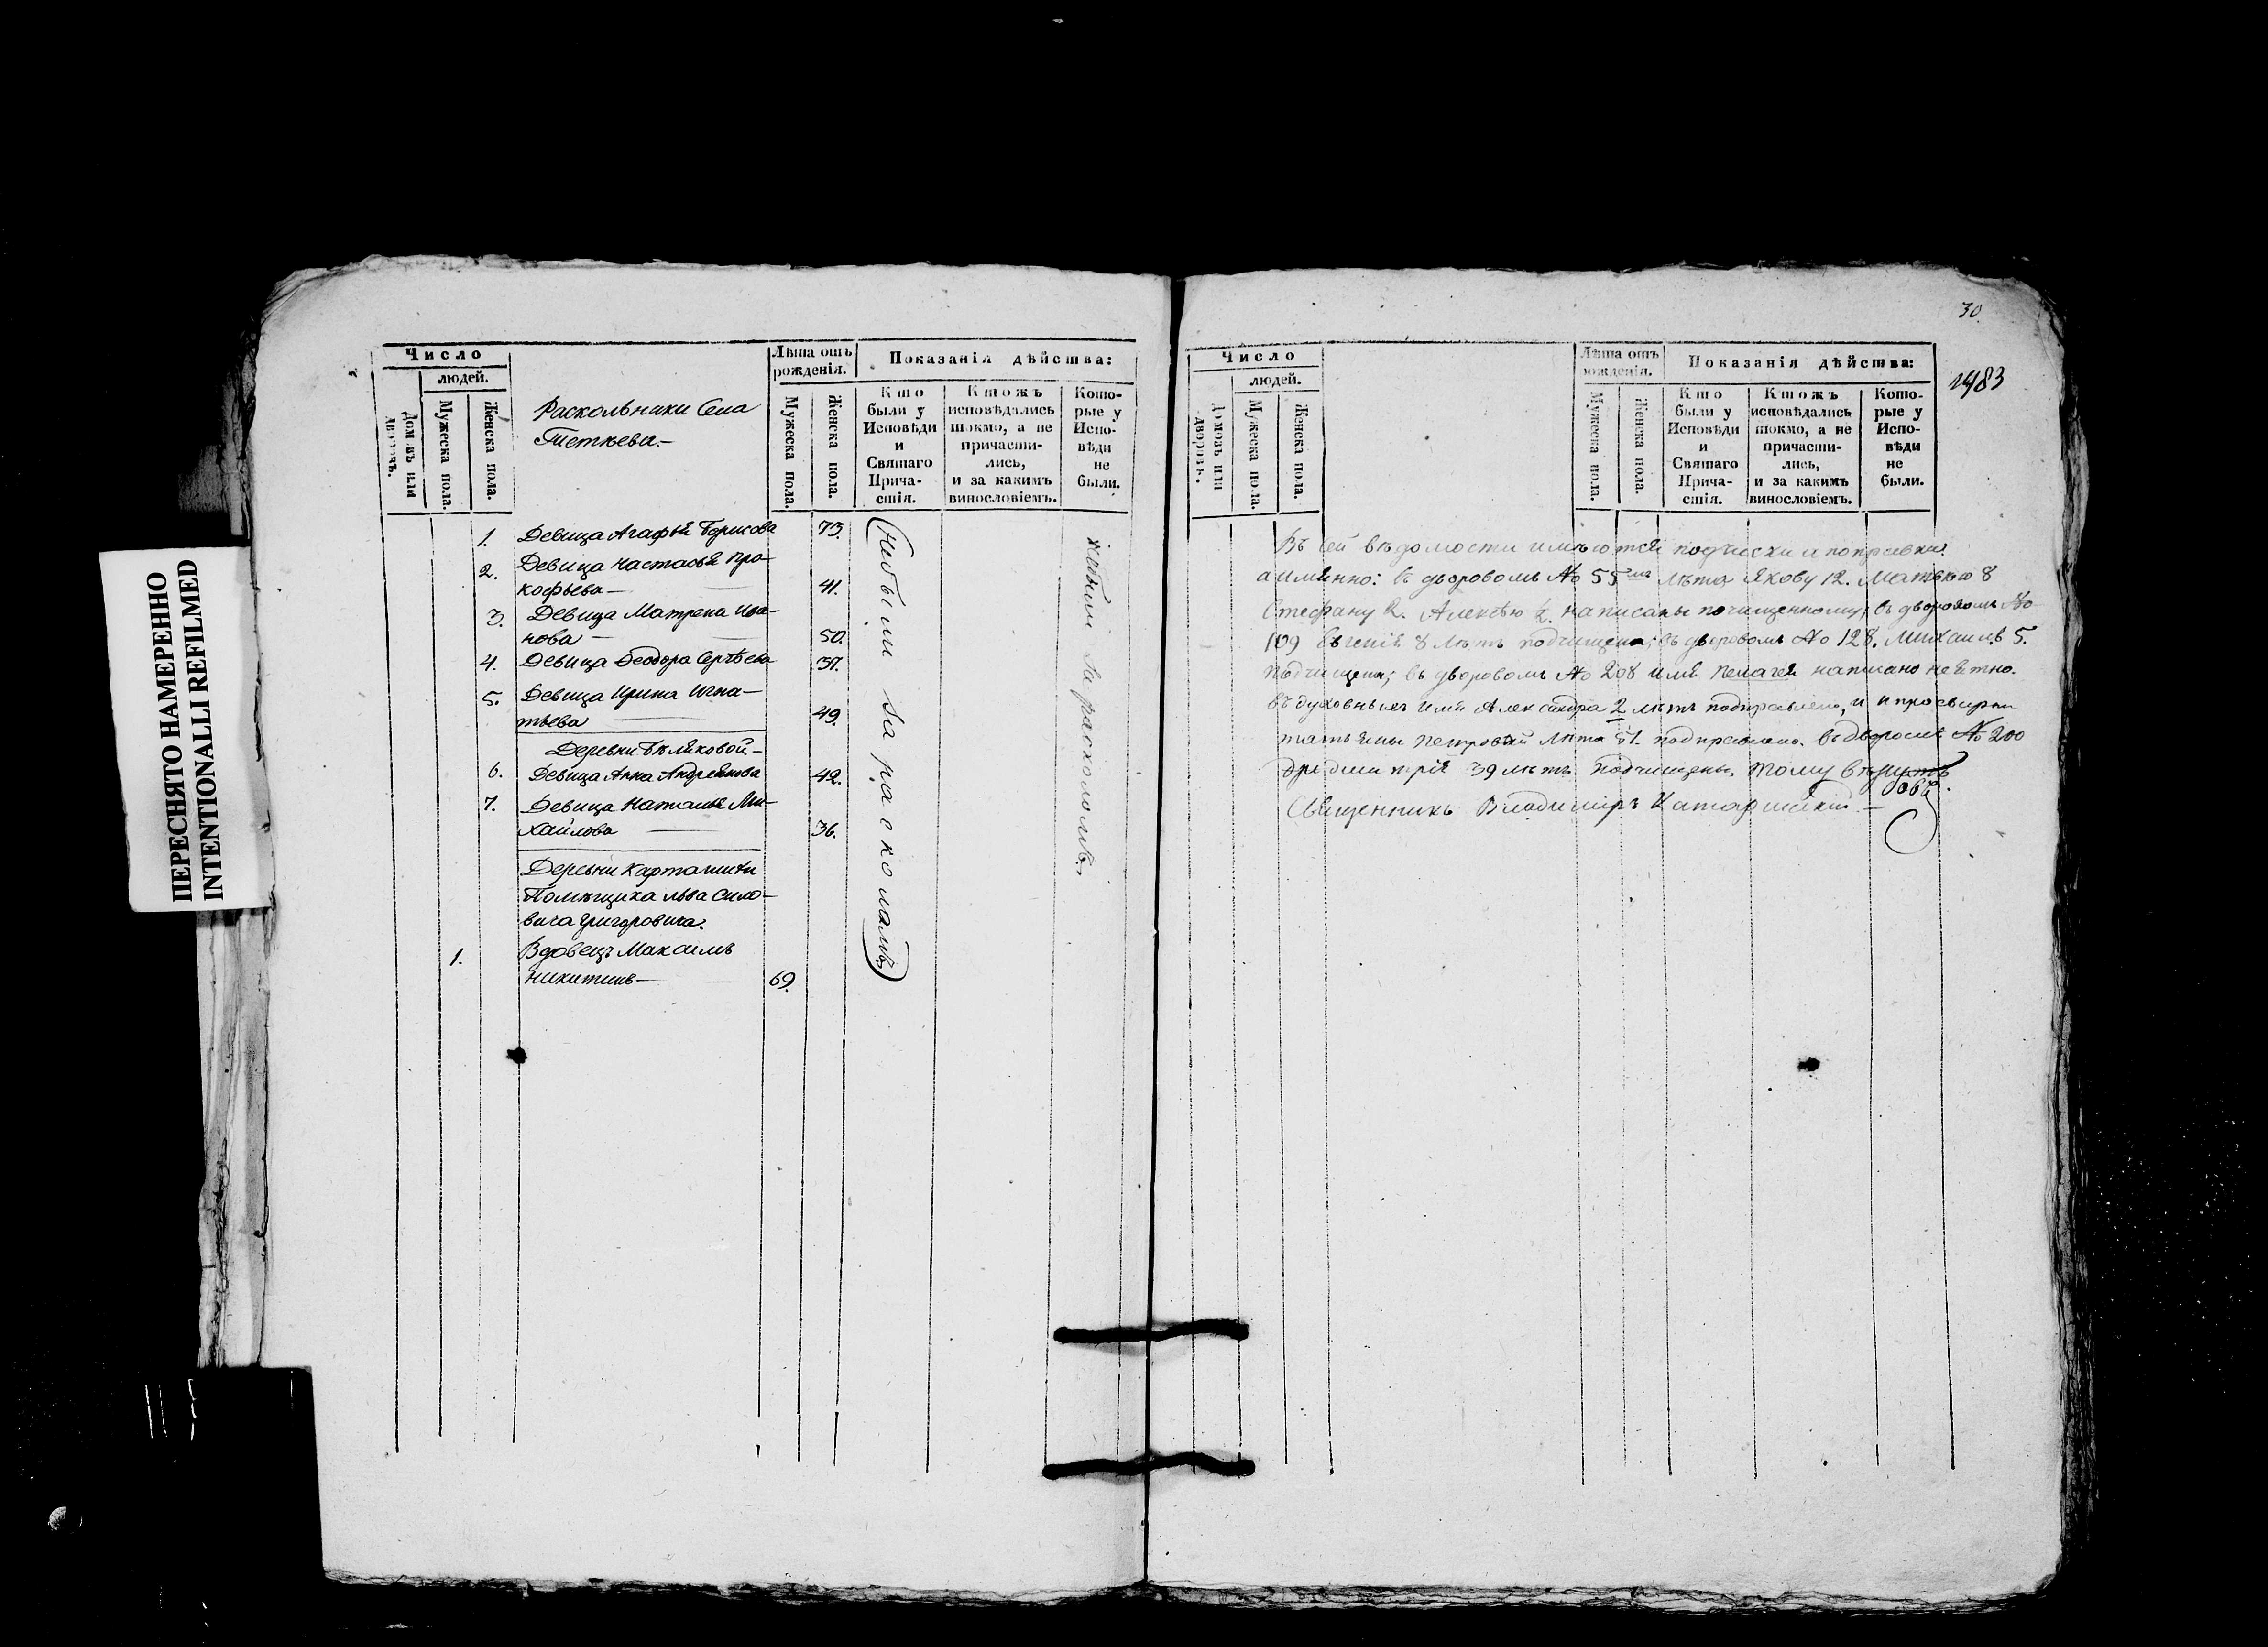 ПЕРЕСНЯТО НАМЕРЕННО
INTENTIONALLI REFILMED
Число
людей.
Домовъ или дворовъ.
Мужеска пола.
Женска пола.
Раскольники Села
Теткева.—
Лѣта отъ рожденія.
Мужеска пола.
Женска пола.
Показанія дѣйства:
Кто были у Исповѣди и Святаго Причастія.
Ктожъ исповѣдались токмо, а не причастились, и за какимъ винословіемъ.
Которые у Исповѣди не были.
1. Девица Агафья Борисова 73.
2. Девица Настасья Про-
кофьева— 41.
3. Девица Матрена Ива-
нова— 50.
4. Девица Ѳеодора Сергѣева 37.
5. Девица Ирина Игна-
тьева 49.
Деревни Бѣляковой—
6. Девица Анна Андреянова 42.
7. Девица Наталья Ми-
хайлова 36.
Деревни Карташихи
Помѣщика Льва
вича Григоровича.
1. Вдовецъ Максимъ
Никитинъ— 69.
Небыли за расколомъ
небыли За расколомъ.
30.
1483
Число
людей.
Домовъ или дворовъ.
Мужеска пола.
Женска пола.
Лѣта отъ рожденія.
Мужеска пола.
Женска пола.
Показанія дѣйства:
Кто были у Исповѣди и Святаго Причастія.
Ктожъ исповѣдались токмо, а не причастились, и за какимъ винословіемъ.
Которые у Исповѣди не были.
Въ сей вѣдомости имѣются подчистки и поправки.
а имянно: въ дворовомъ № 55мъ лѣта Якову 12. Матвѣю 8
Стефану 2. Алексѣю написаны почищенному; въ дворовомъ №
109 Евгенія 8 лѣтъ подчищена; въ дворовомъ № 128. Михаилъ 5.
подчищенъ; въ дворовомъ № 208 имя Пелагея написано неятно.
въ духовныхъ имя Александра 2 лѣтъ подправлено, и просвирни
татьяны Петровой лѣта 51. подправлено. въ дворомъ № 200
Димитрія 39 лѣтъ подчищены. тому
Священникъ Владиміръ